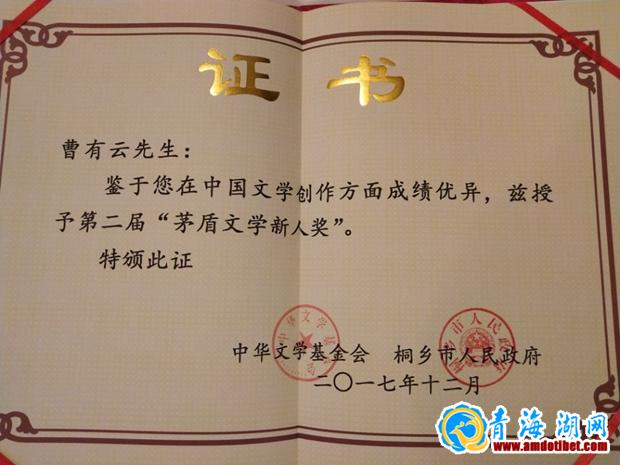 证书
曹有云先生：
鉴于您在中国文学创作方面成绩优异，兹授
予第二届“茅盾文学新人奖”。
特颁此证
中华文学基金会 桐乡市人民政府
二〇一七年十二月
中华文学基金会
桐乡市人民政府
青海湖网
www.amdotibet.com